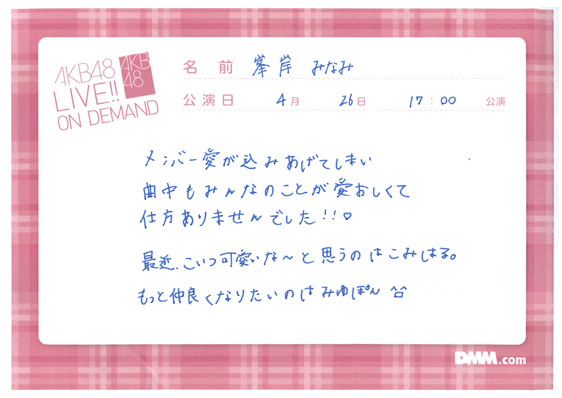 AKB48
LIVE!!
ON DEMAND
AKB
48
名前 峯岸 みなみ
公演日 4月 26日 17:00 公演
メンバー愛が込みあげてしまい
曲中もみんなのことが愛おしくて
仕方ありませんでした!!♡
最近、こいつ可愛いな〜と思うのはこみはる。
もっと仲良くなりたいのはみゆぽん
DMM.com